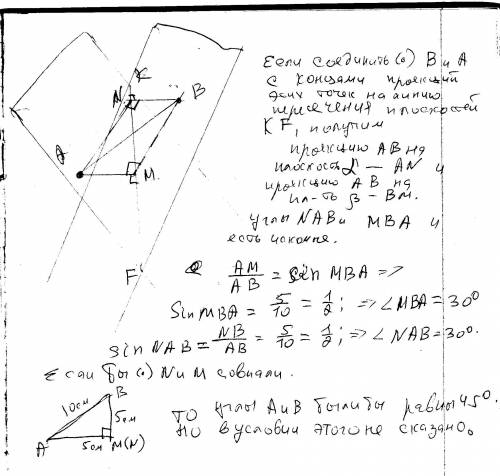 K
N
B
A
M
F
Если соединить (•) B и A
с концами проекций
этих точек на линию
пересечения плоскостей
KF, получим
проекцию AB на
плоскость α — AN и
проекцию AB на
пл-ть β — BM.
углы NAB и MBA и
есть искомые.
AM/AB = sin MBA =>
Sin MBA = 5/10 = 1/2; => ∠MBA = 30°
sin NAB = NB/AB = 5/10 = 1/2; => ∠NAB = 30°.
Если бы (•) N и M совпали.
B
10см
5см
A
5см M(N)
то углы A и B были бы равны 45°.
Но в условии этого не сказано.